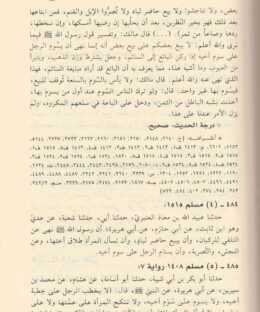 بعض، ولا تناجشوا ولا يبع حاضر لباد ولا تُصرُّوا الإبل والغنم، فمن ابتاعها
بعد ذلك فهو بخير النظرين، بعد أن يحلُبها إن رضيها أمسكها، وإن سخطها
ردها وصاعاً من تمر). (...) قال مالك: وتفسير قول رسول الله ﷺ فيما
نرى والله أعلم: «لا يبع بعضكم على بيع بعض» أنه إنما نهى أن يسوم الرجل
على سوم أخيه إذا ركن البائع إلى السائم، وجعل يشترط وزن الذهب، ويتبرأ
من العيوب وما أشبه هذا مما يُعرف به أن البائع قد أراد مبايعة السائم، فهذا
الذي نهى عنه والله أعلم. قال مالك: ولا بأس بالسَّوم بالسلعة تُوقف للبيع،
فيسوم بها غير واحد، قال: ولو ترك الناس السوم عند أول من يسوم بها،
أخذت بشبه الباطل من الثمن، ودخل على الباعة في سلعهم المكروه، ولم
يزل الأمر عندنا على هذا.
• درجة الحديث: صحيح.
٤٨٤ - (٤) مسلم ١٥١٥:
حدثنا عبيد الله بن معاذ العنبريّ، حدثنا أبي، حدثنا شعبة، عن عديّ
وهو ابن ثابت، عن أبي حازم، عن أبي هريرة: أن رسول الله ﷺ نهى عن
التلقي للركبان، وأن يبيع حاضر لباد، وأن تسأل المرأة طلاق أختها، وعن
النجش، والتصرية، وأن يستام الرجل على سوم أخيه.
٤٨٥ - (٥) مسلم ١٤٠٨ رواية ٧:
حدثنا أبو بكر بن أبي شيبة، حدثنا أبو أسامة، عن هشام، عن محمد بن
سيرين، عن أبي هريرة، عن النبي ﷺ، قال: (لا يخطب الرجل على خطبة
أخيه، ولا يسوم على سَوم أخيه، ولا تنكح المرأة على عمتها ولا على